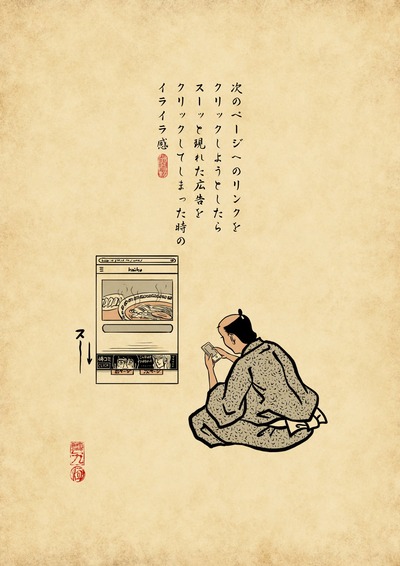 次のページへのリンクを
クリックしようとしたら
スーッと現れた広告を
クリックしてしまった時の
イライラ感
スー